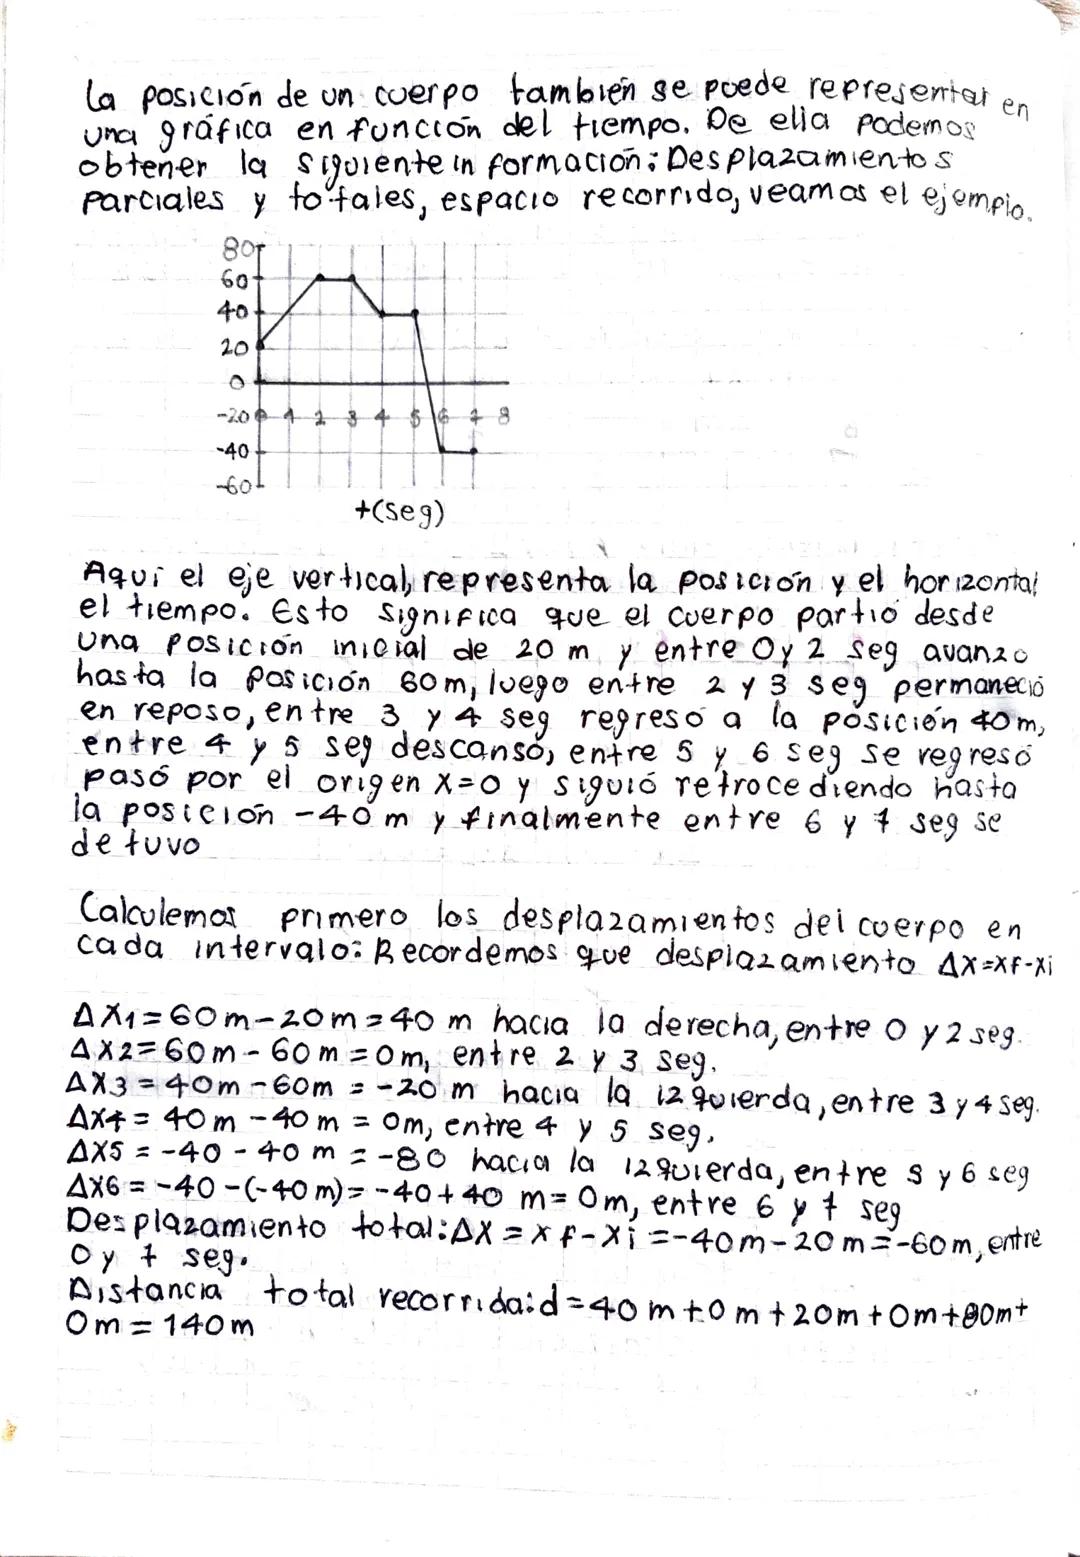 La posición de un cuerpo también se puede representar en
una gráfica en función del tiempo. De ella podemos
obtener la siguiente in formación: Desplazamientos
parciales y totales, espacio recorrido, veamos el ejemplo.
80
60
40
20
0
-20 0 1 2 3 4 5 6 7 8
-40
-60
t(seg)
Aqui el eje vertical, representa la posición y el horizontal
el tiempo. Esto significa que el cuerpo partió desde
una posición inicial de 20 m y entre 0 y 2 seg avanzo
hasta la posición 60m, luego entre 2 y 3 seg permaneció
en reposo, entre 3 y 4 seg regresó a la posición 40m,
entre 4 y 5 seg descansó, entre 5 y 6 seg se regresó
pasó por el origen x=0 y siguió retrocediendo hasta
la posición -40m y finalmente entre 6 y 7 seg se
detuvo
Calculemos primero los desplazamientos del cuerpo en
cada intervalo: Recordemos que desplazamiento Δx=xf-xi
Δx1=60m-20m=40 m hacia la derecha, entre 0 y 2 seg.
Δx2=60m-60m=0m, entre 2 y 3 seg.
Δx3=40m-60m = -20m hacia la izquierda, entre 3 y 4 seg.
Δx4= 40m-40m = 0m, entre 4 y 5 seg.
Δx5 = -40-40 m = -80 hacia la izquierda, entre 5 y 6 seg
Δx6= -40-(-40m)= -40+40 m= 0m, entre 6 y 7 seg
Desplazamiento total: Δx = xf-xi =-40m-20m=-60m, entre
0 y 7 seg.
Distancia total recorrida: d=40m+0m+20m+0m+80m+
0m=140m